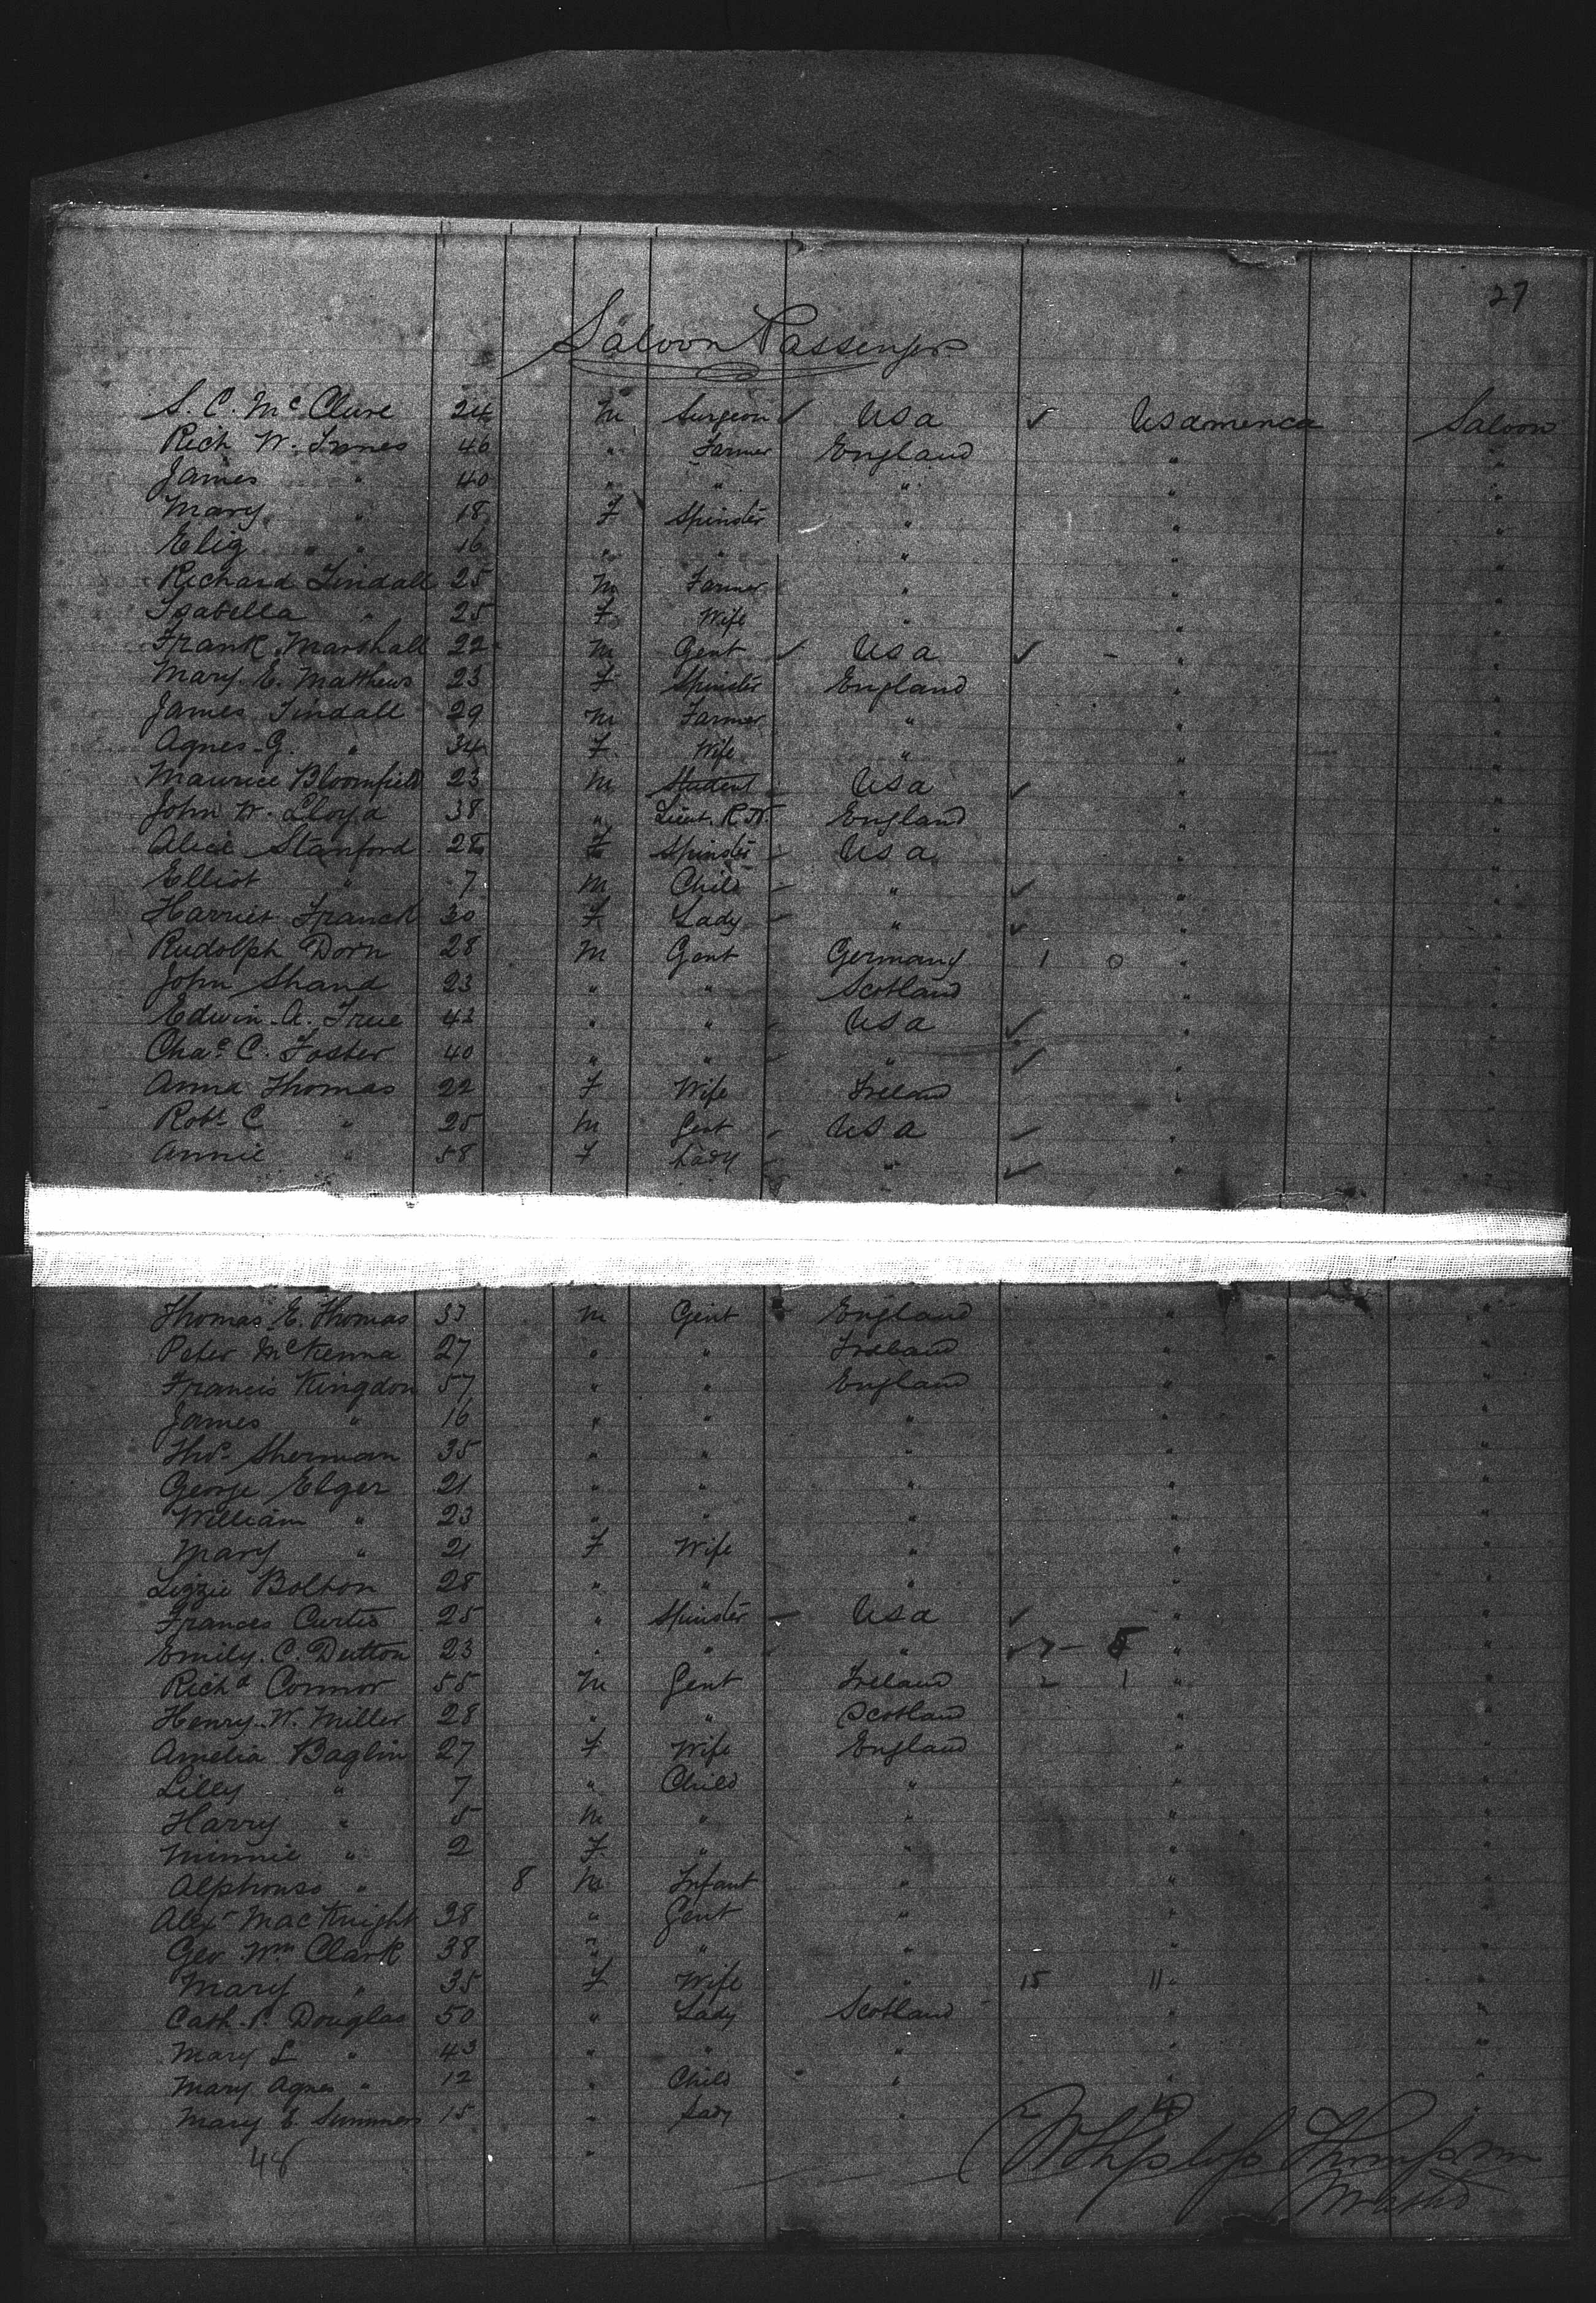 27
Saloon Passengers
S. C. McClure 24 M Surgeon ✓ USA ✓ USAmerica Saloon
Rich W. Innes 46 " Farmer England " "
James " 40 " " " " "
Mary " 18 F Spinster " " "
Eliz " " 16 " " " " "
Richard Tindall 25 M Farmer " " "
Isabella " 25 F Wife " " "
Frank Marshall 22 M Gent ✓ USA ✓ - " "
Mary E. Matthews 23 F Spinster England " "
James Tindall 29 M Farmer " " "
Agnes G. " 34 F Wife " " "
Maurice Bloomfield 23 M Student USA ✓ " "
John W. Lloyd 38 " Lieut. R.N. England " "
Alice Stanford 28 F Spinster - USA " "
Elliot " 7 M Child - " ✓ " "
Harriet Franck 30 F Lady - " ✓ " "
Rudolph Dorn 28 M Gent Germany 1 0 " "
John Shand 23 " " Scotland " "
Edwin A. True 42 " " - USA ✓ " "
Chas C. Foster 40 " " - " ✓ " "
Anna Thomas 22 F Wife Ireland " "
Robt C " 25 M Gent - USA ✓ " "
Annie " 58 F Lady - " ✓ " "
Thomas E. Thomas 33 M Gent England " "
Peter McKenna 27 " " Ireland " "
Francis Kingdon 57 " " England " "
James " 16 " " " " "
Thos Sherman 35 " " " " "
George Elger 21 " " " " "
William " 23 " " " " "
Mary " 21 F Wife " " "
Lizzie Bolton 28 " " " " "
Frances Curtis 25 " Spinster - USA ✓ " "
Emily C. Dutton 23 " " - " ✓ 7 - 5 " "
Richd Connor 55 M Gent Ireland 2 1 " "
Henry W. Miller 28 " " Scotland " "
Amelia Baglin 27 F Wife England " "
Lilly " 7 " Child " " "
Harry " 5 M " " " "
Minnie " 2 F " " " "
Alphonso " 8 M Infant " " "
Alexr MacKnight 38 " Gent " " "
Geo Wm Clark 38 " " " " "
Mary " 35 F Wife " 15 11 " "
Cath. P. Douglas 50 " Lady Scotland " "
Mary L " 43 " " " " "
Mary Agnes " 12 " Child " " "
Mary E Summers 15 " Lady " 2 "
48 "
Thompson
Master